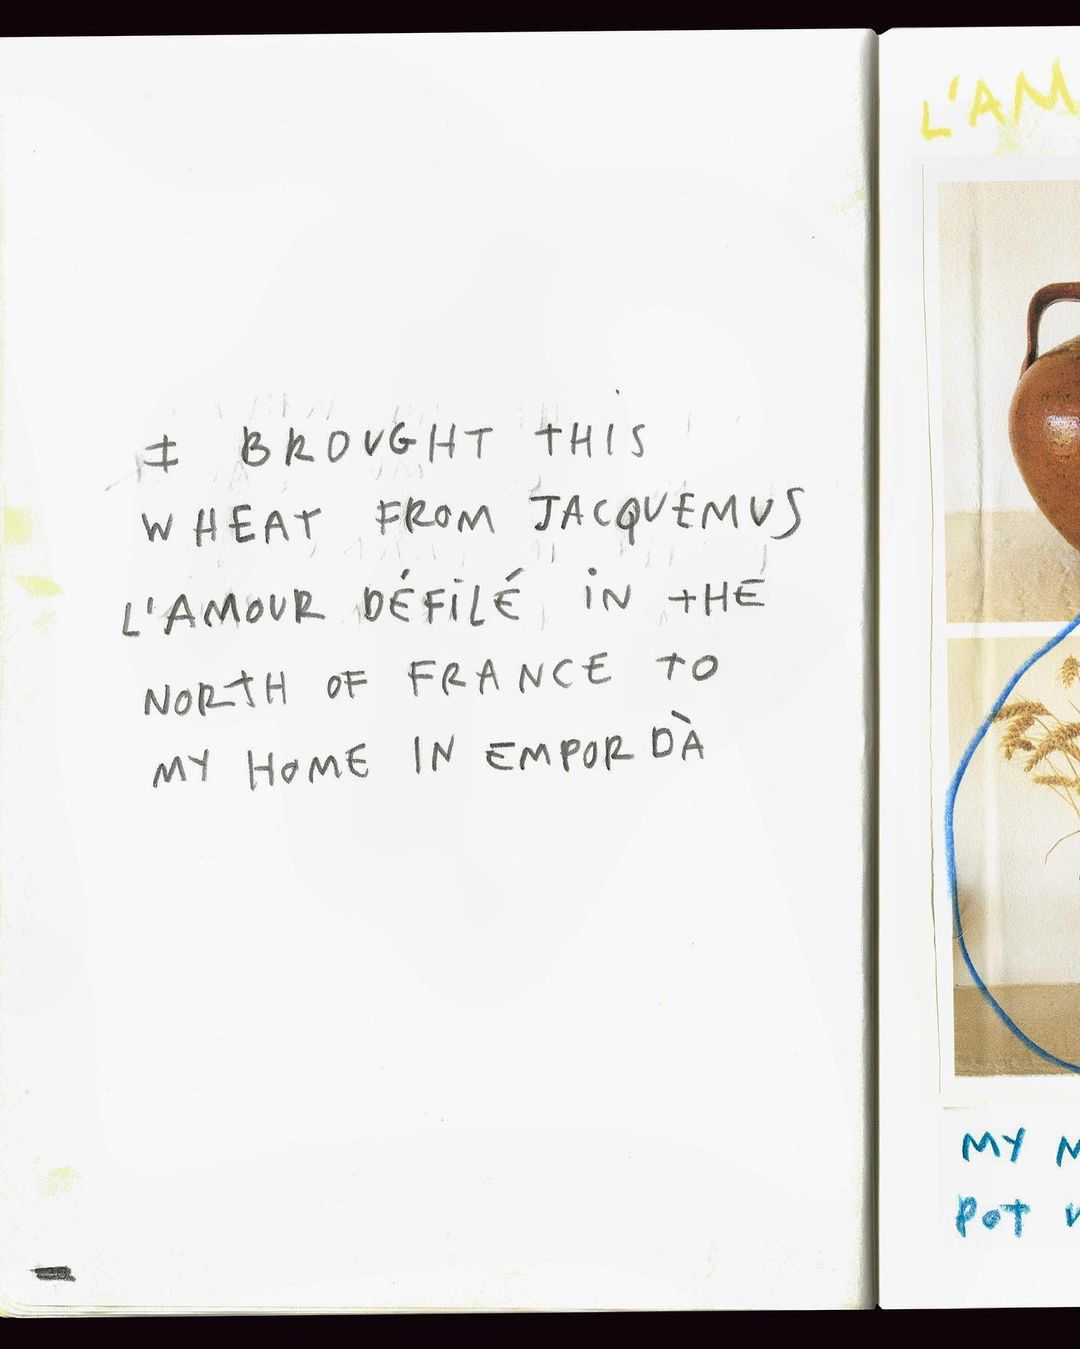 I BROUGHT THIS
WHEAT FROM JACQUEMUS
L'AMOUR DÉFILÉ IN THE
NORTH OF FRANCE TO
MY HOME IN EMPORDÀ
L'AM
MY
POT